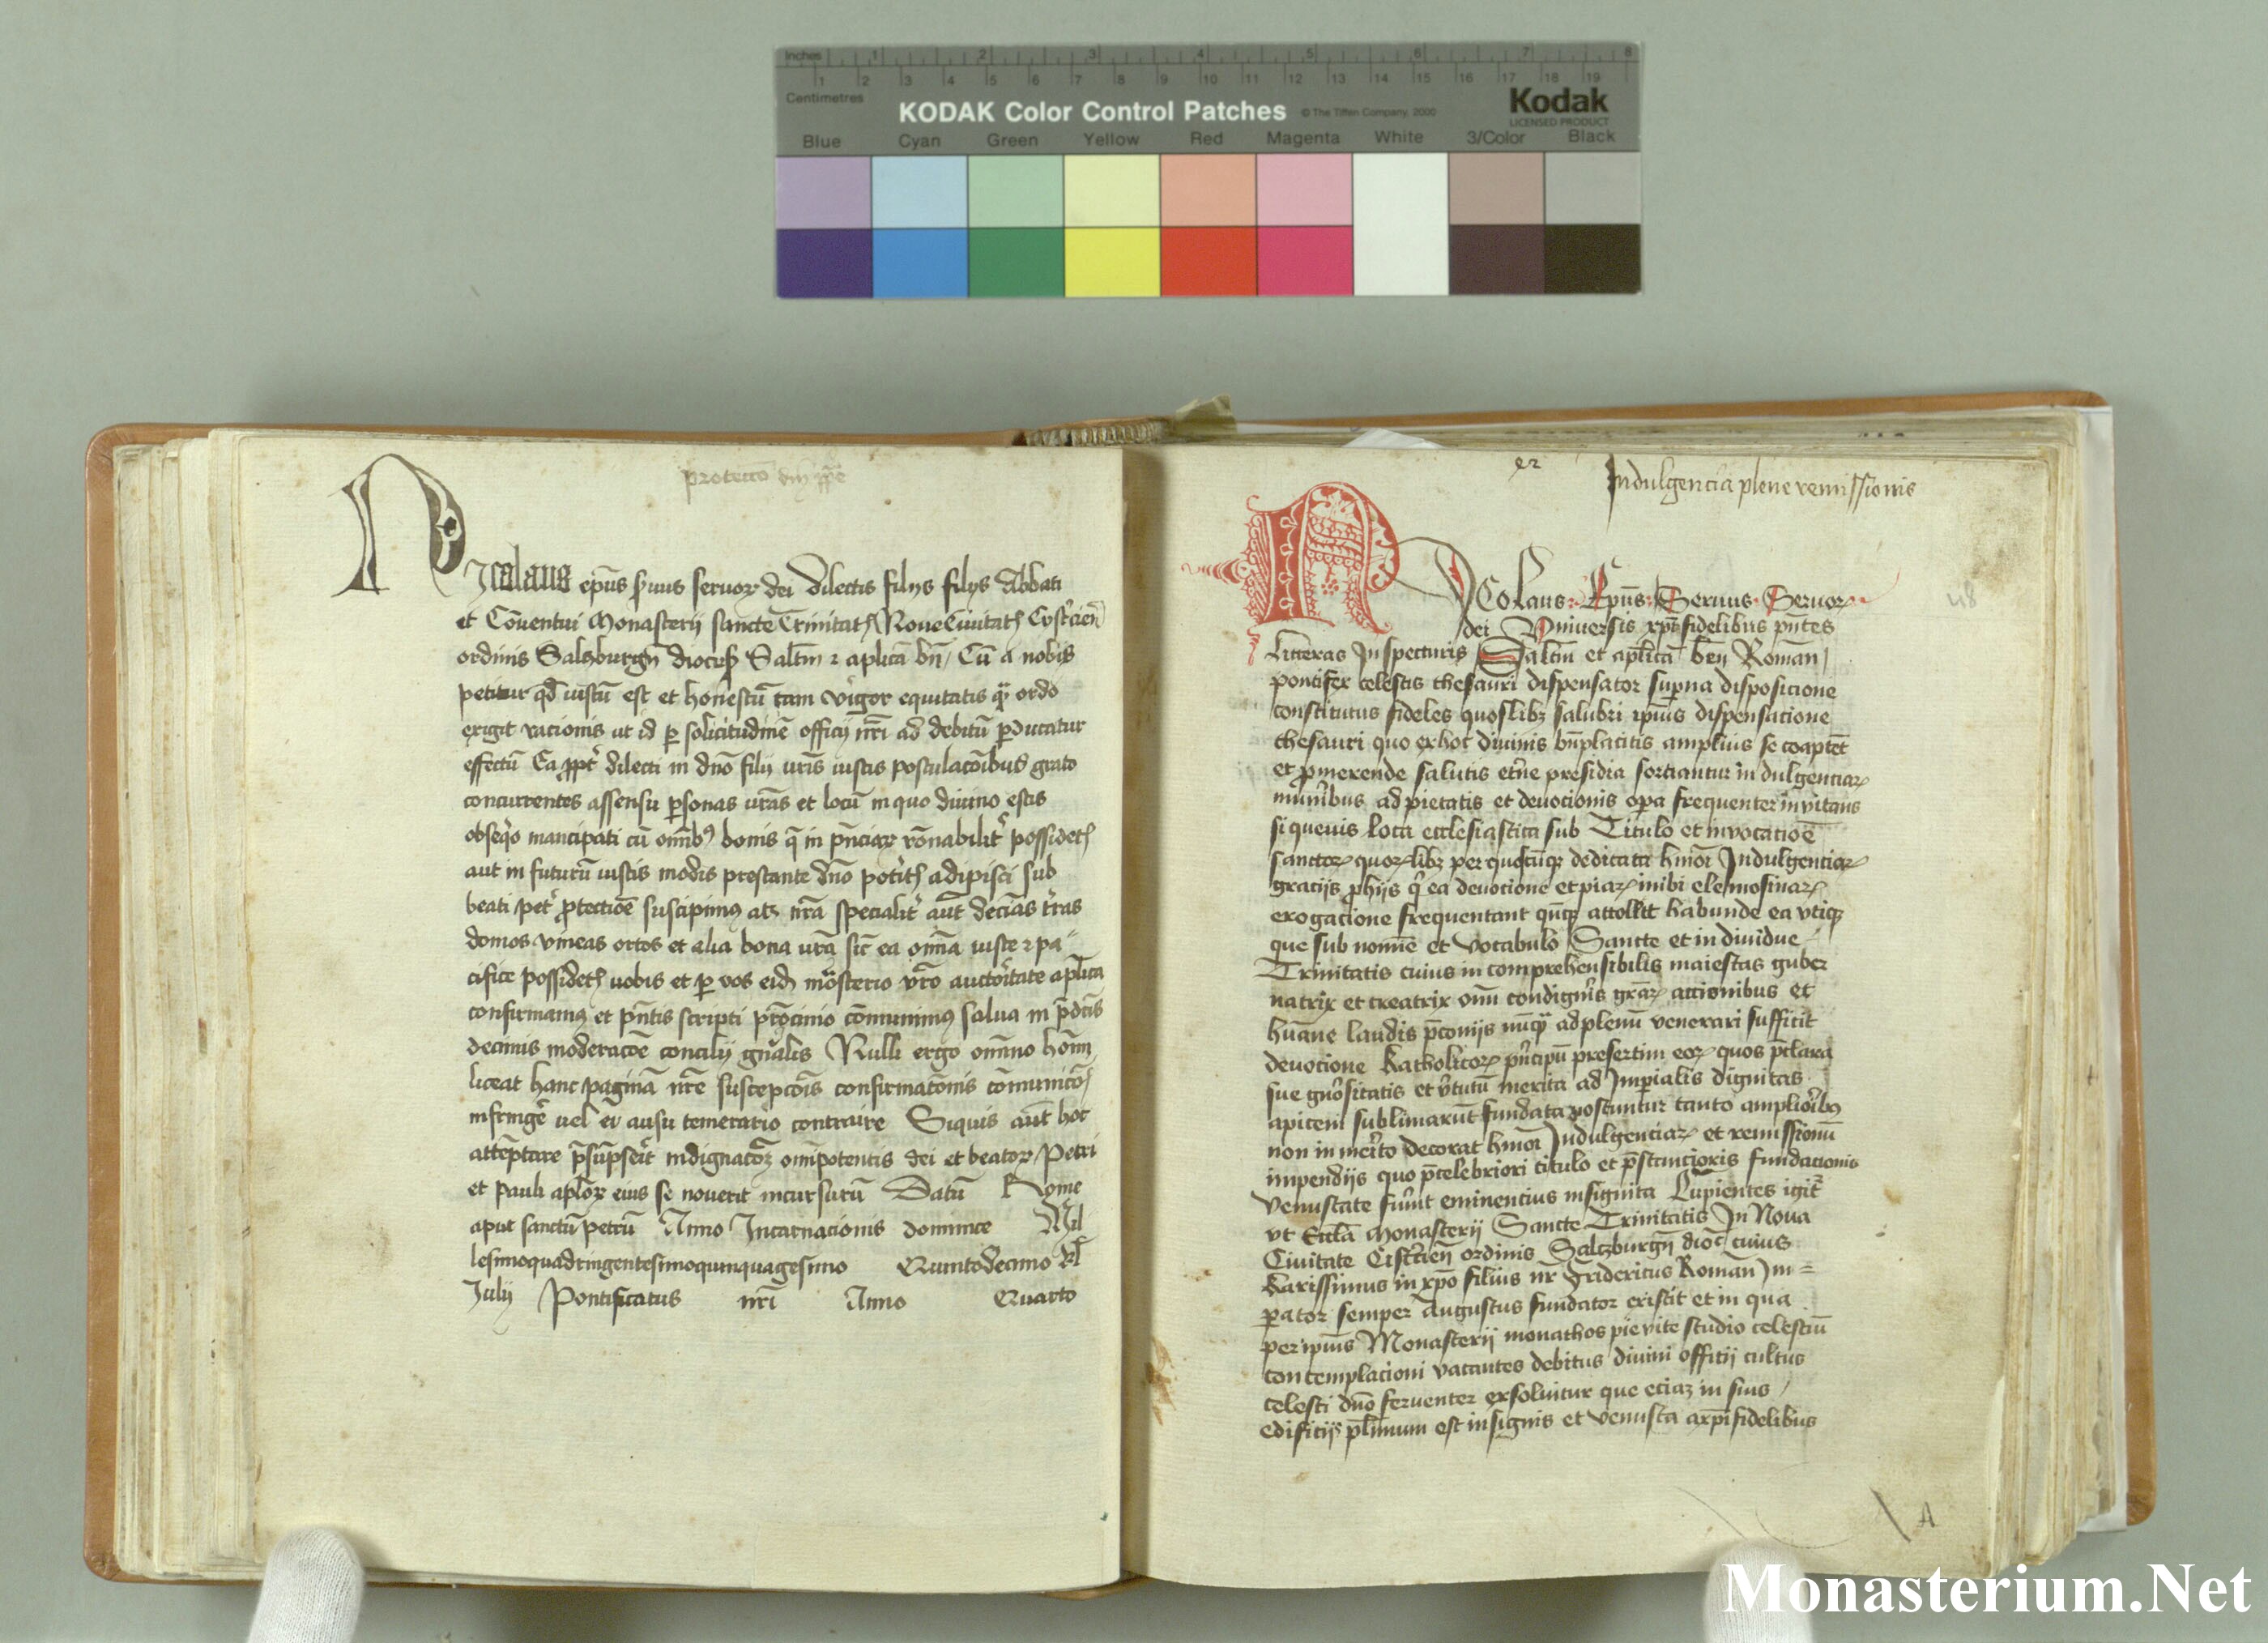 Inches 1 2 3 4 5 6 7 8
1 2 3 4 5 6 7 8 9 10 11 12 13 14 15 16 17 18 19
Centimetres
KODAK Color Control Patches © The Tiffen Company, 2000 Kodak
LICENSED PRODUCT
Blue Cyan Green Yellow Red Magenta White 3/Color Black
protectō dnj ppe
Nicolaus ep̄us s̄uus seruoꝝ dei Dilectis filijs filijs Abbati
et Cōuentui Monasterij sancte Trinitatꝭ Noue Ciuitatꝭ Cystrcieñ
ordinis Salzburgñ diocesꝭ Saltm̄ ꝛ aplicā bñ Cū a nobis
petitur qd̄ iustū est et honestū tam vigor equitatis qͣꝫ ordo
exigit racionis ut id ꝑ solicitudinē officij nr̄i ad debitū ꝑducatur
effectū Ea ꝓpt̉ dilecti in dn̄o filij vr̄is iustis postulacōibus grato
concurrentes assensu ꝑsonas vr̄as et locū in quo diuino estis
obseq̉o mancipati cū om̄ibꝰ bonis q̄ in pn̄ciaꝝ rōnabilit̉ possidetꝭ
aut in futurū iustis modis prestante dn̄o potitꝭ adipisci sub
beati pet̉ ꝓtectiōe suscipimꝰ atꝫ nr̄a specialit̉ aūt decīas t̉ras
domos vineas ortos et alia bona vr̄a sic̄ ea om̄ia iuste ꝛ pa
cifice possidetꝭ uobis et ꝑ vos eidꝫ mōsterio vr̄o auctoritate aplica
confirmamꝰ et pn̄tis scripti pr̄ocinio cōmunimꝰ salua in p̄dcīs
decimis moderacōe concilij gn̄alis Nulli ergo om̄ino hom̄
liceat hanc paginā nr̄e suscepcōis confirmacōnis cōmunicō
infringẻ uel ei ausu temerario contraire Siquis aūt hoc
attēptare p̄sūpserit indignacōꝫ om̄ipotentis dei et beatoꝝ Petri
et Pauli aplōꝝ eius se nouerit incursurū Datū Rome
aput sanctū petrū Anno Incarnacionis dominice Mil
lesimoquadringentesimoquinquagesimo Quintodecimo kł
Julij Pontificatus nr̄i Anno Quarto
Indulgencia plene remissionis
48
Nicolaus Ep̄us Seruus Seruoꝝ
dei Vniuersis xp̄ifidelibus pn̄tes
Litteras Inspecturis Saltm̄ et aplicā beñ Roman
pontifex celestis thesauri dispensator suꝑna disposicione
constitutus fideles quoslibꝫ salubri ipīus dispensacione
thesauri quo ex hoc diuinis bn̄placitis amplius se coaptēt
et ꝓmerende salutis et̉ne presidia sortiantur indulgenciaꝝ
mun̉ibus ad pietatis et deuocionis opa frequenter inuitans
si queuis loca ecclesiastica sub Titulo et inuocatiōe
sanctoꝝ quoꝝlibꝫ per quoscūqꝫ dedicata hmōi Indulgenciaꝝ
gracijs ꝓ hijs q̉ ea deuocione et piaꝝ inibi elemosinaꝝ
erogacione frequentant qn̄qꝫ attollit habunde ea vtiqꝫ
que sub nomīe et vocabulo Sancte et indiuidue
Trinitatis cuius incomprehensibilis maiestas guber
natrix et creatrix om̄ condignis grāꝝ accionibus et
hūane laudis p̄conijs nūqͣꝫ ad plenū venerari sufficit
deuocione katholicoꝝ pn̉cipū presertim eoꝝ quos p̄clara
sue gn̉ositatis et v̉tutū merita ad Imperialis dignitas
apicem sublimarūt fundata noscuntur tanto amplioribꝰ
non inmerito decorat hmōi Indulgenciaꝝ et remissionū
impendijs quo p̄celebriori titulo et p̄stancioris fundacionis
venustate fūnt eminencius insignita Cupientes igit̉
vt Ecclā Monasterij Sancte Trinitatis In Noua
Ciuitate Cistrcieñ ordinis Saltzburgñ dioc̄ cuius
karissimus in xp̄o filius nr̄ Fridericus Roman̄ Im=
perator semper Augustus fundator existit et in qua
per ipīus Monasterij monachos pie vite studio celestiū
contemplacioni vacantes debitus diuini officij cultus
celesti dn̄o feruenter exsoluitur que eciaꝫ in suis
edificijs pl̄imum est insignis et venusta a xp̄ifidelibus
A
Monasterium.Net